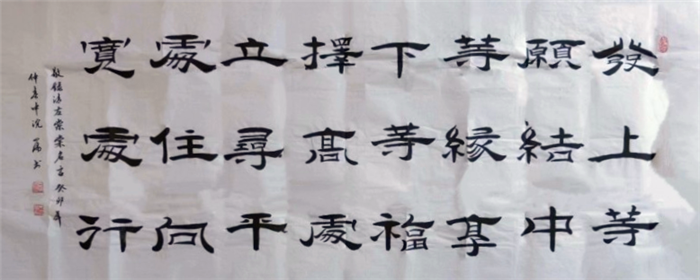 發上等
願結中
等緣享
下等福
擇高處
立尋平
處住向
寬處行
敬錄清左宗棠名言 癸卯年
仲春中浣 書